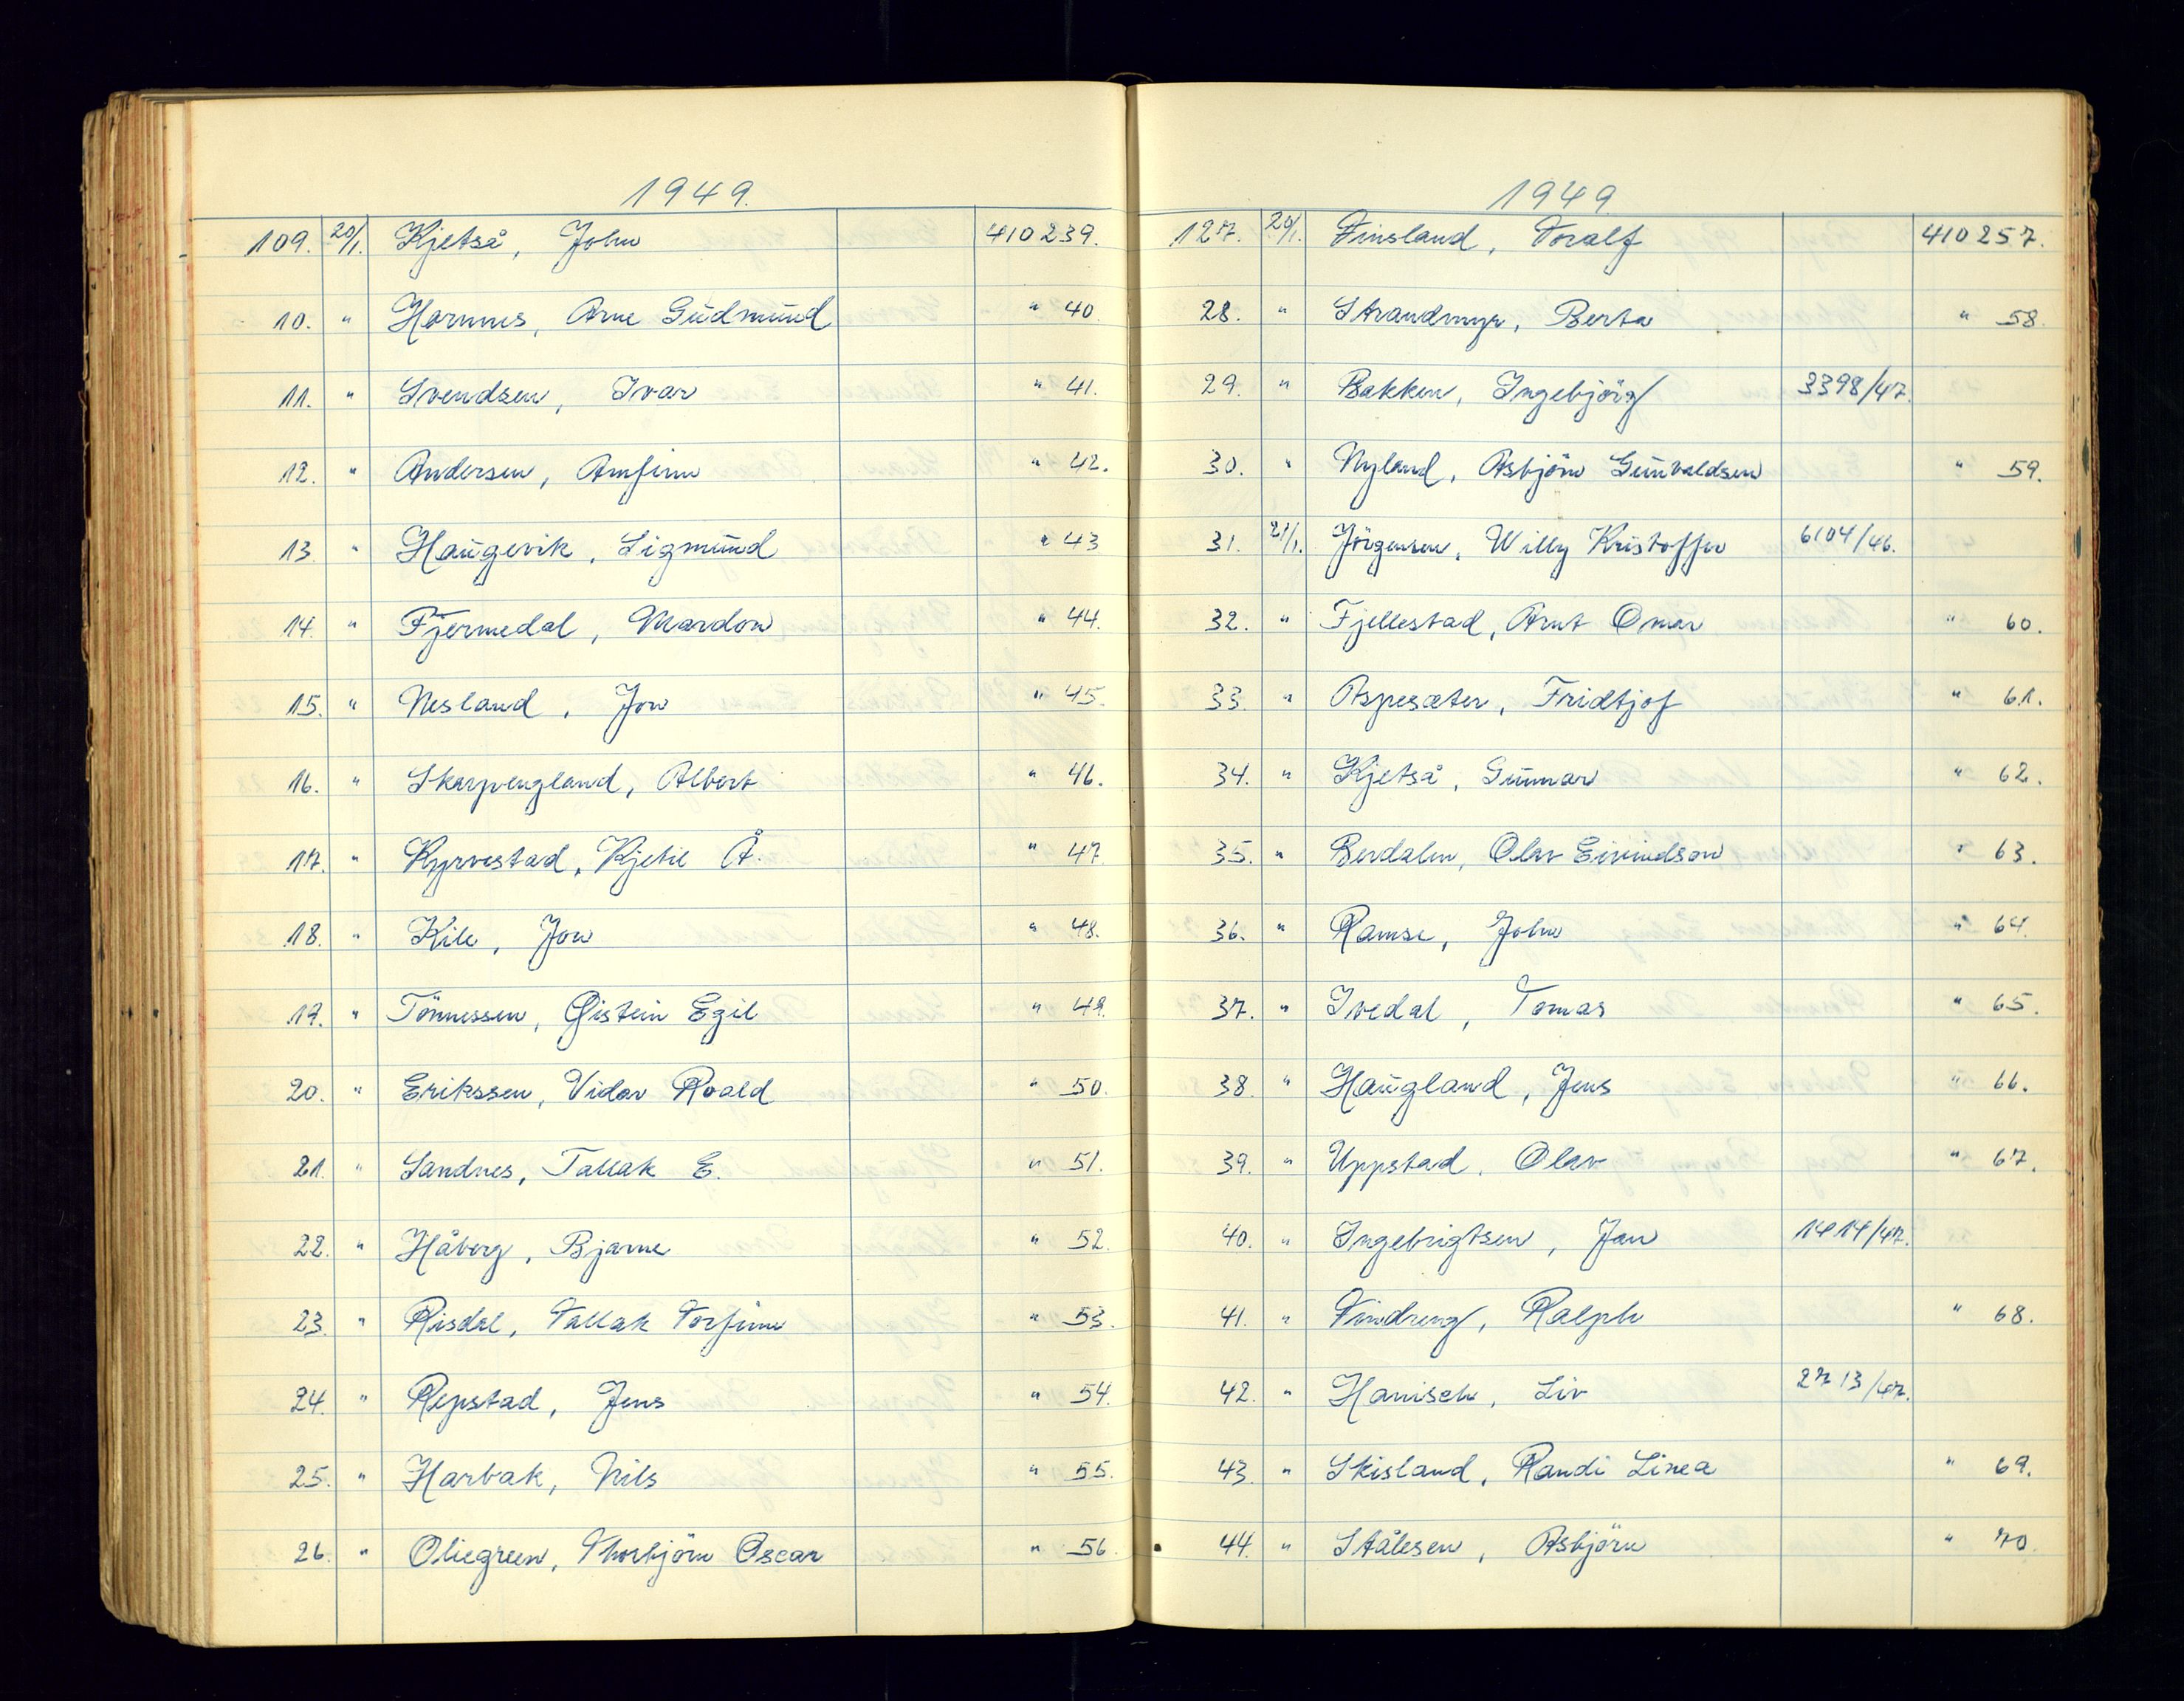 1949.
109. 20/1. Kjetså, John 410239.
10. " Hornnes, Arne Gudmund " 40
11. " Svendsen, Ivar " 41.
12. " Andersen, Arnfinn " 42.
13 " Haugevik, Sigmund " 43
14. " Fjermedal, Mardon " 44.
15. " Nesland, Jon " 45.
16. " Skarpengland, Albert " 46.
17. " Kyrvestad, Kjetil Å. " 47
18. " Kile, Jon " 48.
19. " Tönnessen, Øistein Egil " 49.
20. " Erikssen, Vidar Roald " 50.
21. " Sandnes, Tallak E. " 51.
22. " Håberg, Bjarne " 52.
23. " Risdal, Tallak Torfinn " 53.
24. " Repstad, Jens " 54.
25. " Harbak, Nils " 55.
26. " Oliegreen, Thorbjörn Oscar " 56
1949
127. 20/1. Finsland, Toralf 410257.
28. " Strandmyr, Berta " 58.
29. " Bakken, Ingebjörg 3398/47.
30. " Nyland, Asbjörn Gunvaldsen " 59.
31. 21/1. Jörgensen, Willy Kristoffer 6104/46.
32. " Fjellestad, Arnt Omar " 60.
33. " Aspesæter, Fridtjof " 61.
34. " Kjetså, Gunnar " 62.
35. " Berdalen, Olav Eivindson " 63.
36. " Ramse, John " 64.
37. " Ivedal, Tomas " 65.
38. " Haugland, Jens " 66.
39. " Uppstad, Olav " 67.
40. " Ingebrigtsen, Jan 1414/47.
41. " Tindreng, Ralph " 68.
42. " Hanisch, Liv 2713/47.
43. " Skisland, Randi Linea " 69.
44. " Stålesen, Asbjörn " 70